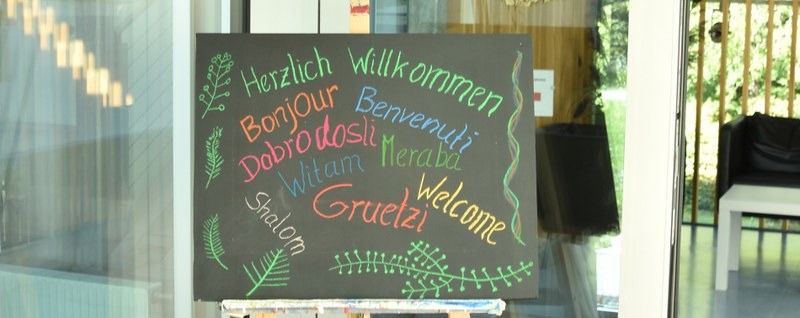 Herzlich Willkommen
Bonjour
Benvenuti
Dobrodosli
Meraba
Witam
Welcome
Gruetzi
Shalom